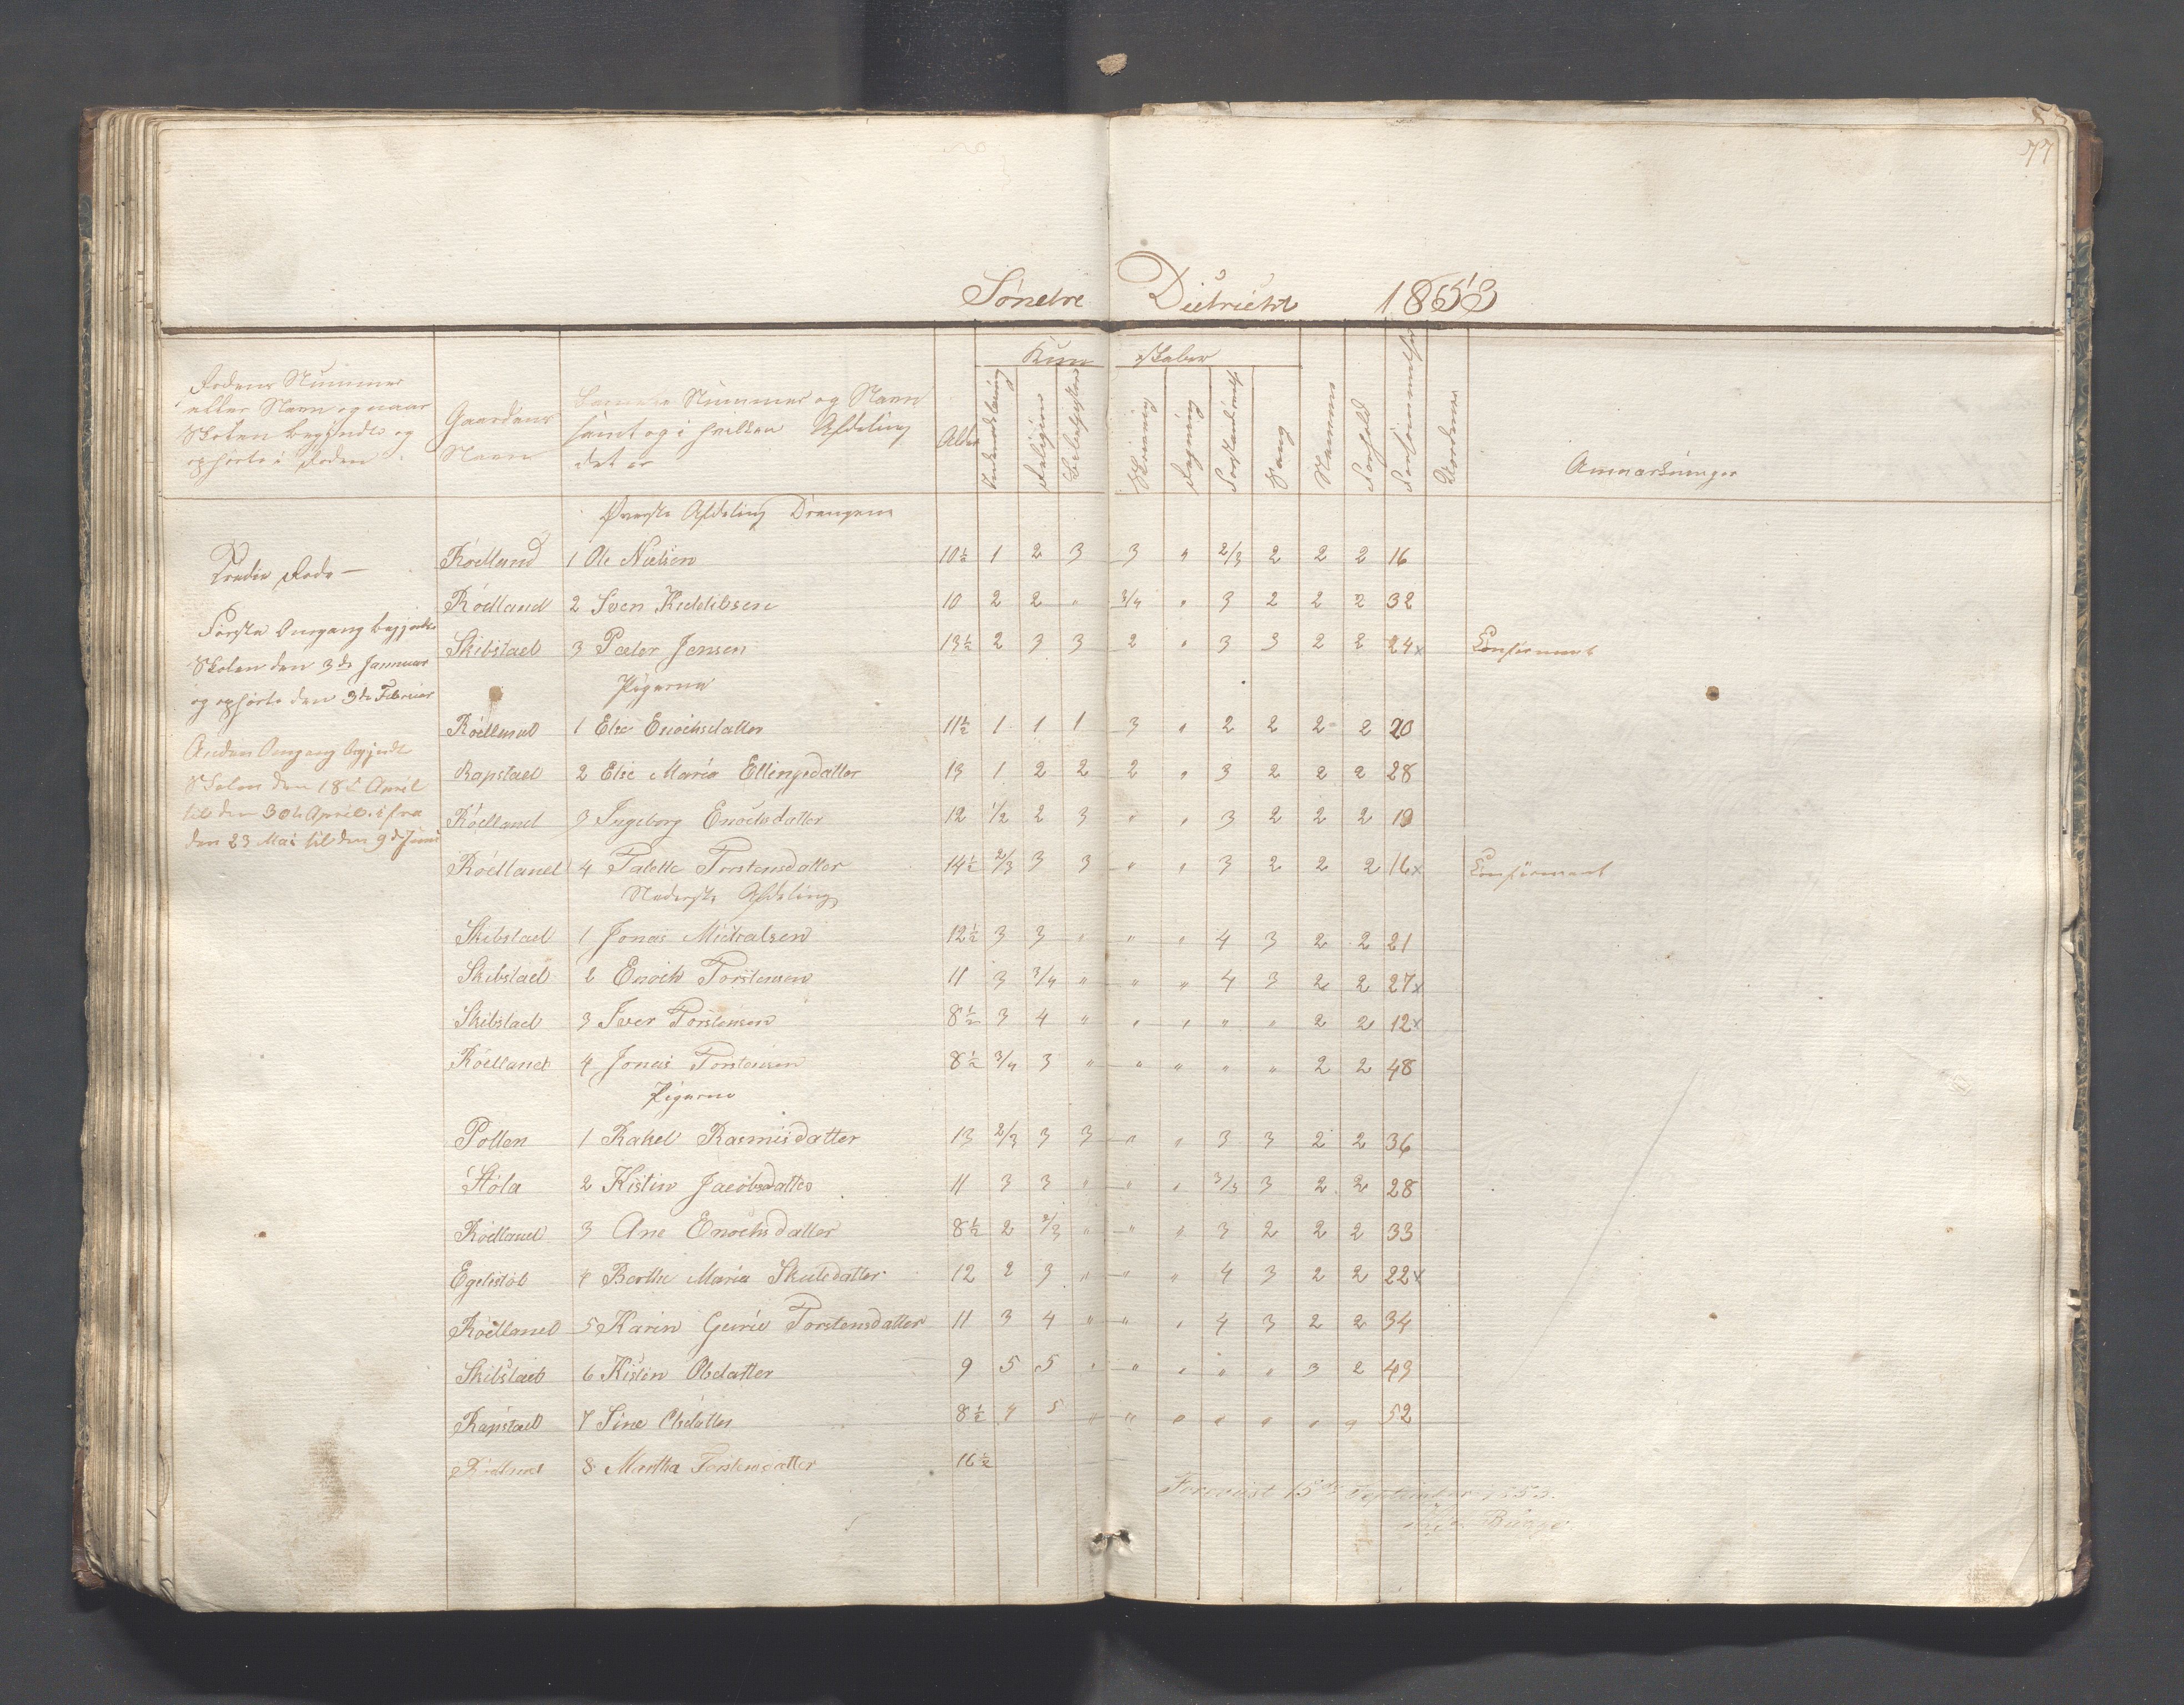 77
Søndre Districkt 1853
Rodens Nummer
eller Navn og naar
Skolen begyndte og
ophørte i Roden
Gaardens
Navn
Børnenes Nummer og Navn
samt og i hvilken Afdeling
det er
Alder
Kun skaber
Indenadslæsning
Religion
Bibelhistorie
Skrivning
Regning
Forstandsøvelse
Sang
Nemme
Forhold
Forsømmelser
Uordener
Anmærkninger
Øverste Afdeling Drengene
Tredie Rode —
Rødland 1 Ole Nielsen 10½ 1 2 3 3 " 2/3 2 2 2 16
Rødland 2 Sven Kiddilsen 10 2 2 " 3/4 " 3 2 2 2 32
Første Omgang begyndte
Skolen den 3de Januar
og ophørte den 3de Februar
Skibstad 3 Peder Jensen 13½ 2 3 3 2 " 3 3 2 2 24x Confirmant
Pigerne
Rødland 1 Else Enochsdatter 11½ 1 1 1 3 " 2 2 2 2 20
Anden Omgang begyndte
Skolen den 18de April
til den 30te April. i fra
den 23 Mai til den 9de Juni
Rapstad 2 Else Maria Ellingsdatter 13 1 2 2 2 " 3 2 2 2 28
Rødland 3 Ingeborg Enochsdatter 12 1/2 2 3 " " 3 2 2 2 19
Rødland 4 Talette Torstensdatter 14½ 2/3 3 3 " " 3 2 2 2 16x Confirmant
Nederste Afdeling
Skibstad 1 Jonas Mickalsen 12½ 3 3 " " " 4 3 2 2 21
Skibstad 2 Enoch Torstensen 11 3 3/4 " " " 4 3 2 2 27x
Skibstad 3 Iver Torstensen 8½ 3 4 " " " " " 2 2 12x
Rødland 4 Jonas Torstensen 8½ 3/4 3 " " " " " 2 2 48
Pigerne
Pollen 1 Rakel Rasmusdatter 13 2/3 3 3 " " 3 3 2 2 36
Støla 2 Kistin Jacobsdatter 11 3 3 " " " 3/3 3 2 2 28
Rødland 3 Ane Enochsdatter 8½ 2 2/3 " " " 3 2 2 2 33
Egelistøl 4 Berthe Maria Skuledatter 12 2 3 " " " 4 3 2 2 22x
Rødland 5 Karin Gurie Torstensdatter 11 3 4 " " " 4 3 2 2 34
Skibstad 6 Kistin Olsdatter 9 5 5 " " " " " 3 2 43
Rapstad 7 Sine Olsdatter 8½ 4 5 " " " " " " " 52
Rødland 8 Martha Torstensdatter 16½
Foreviist 15de September 1853.
Bugge